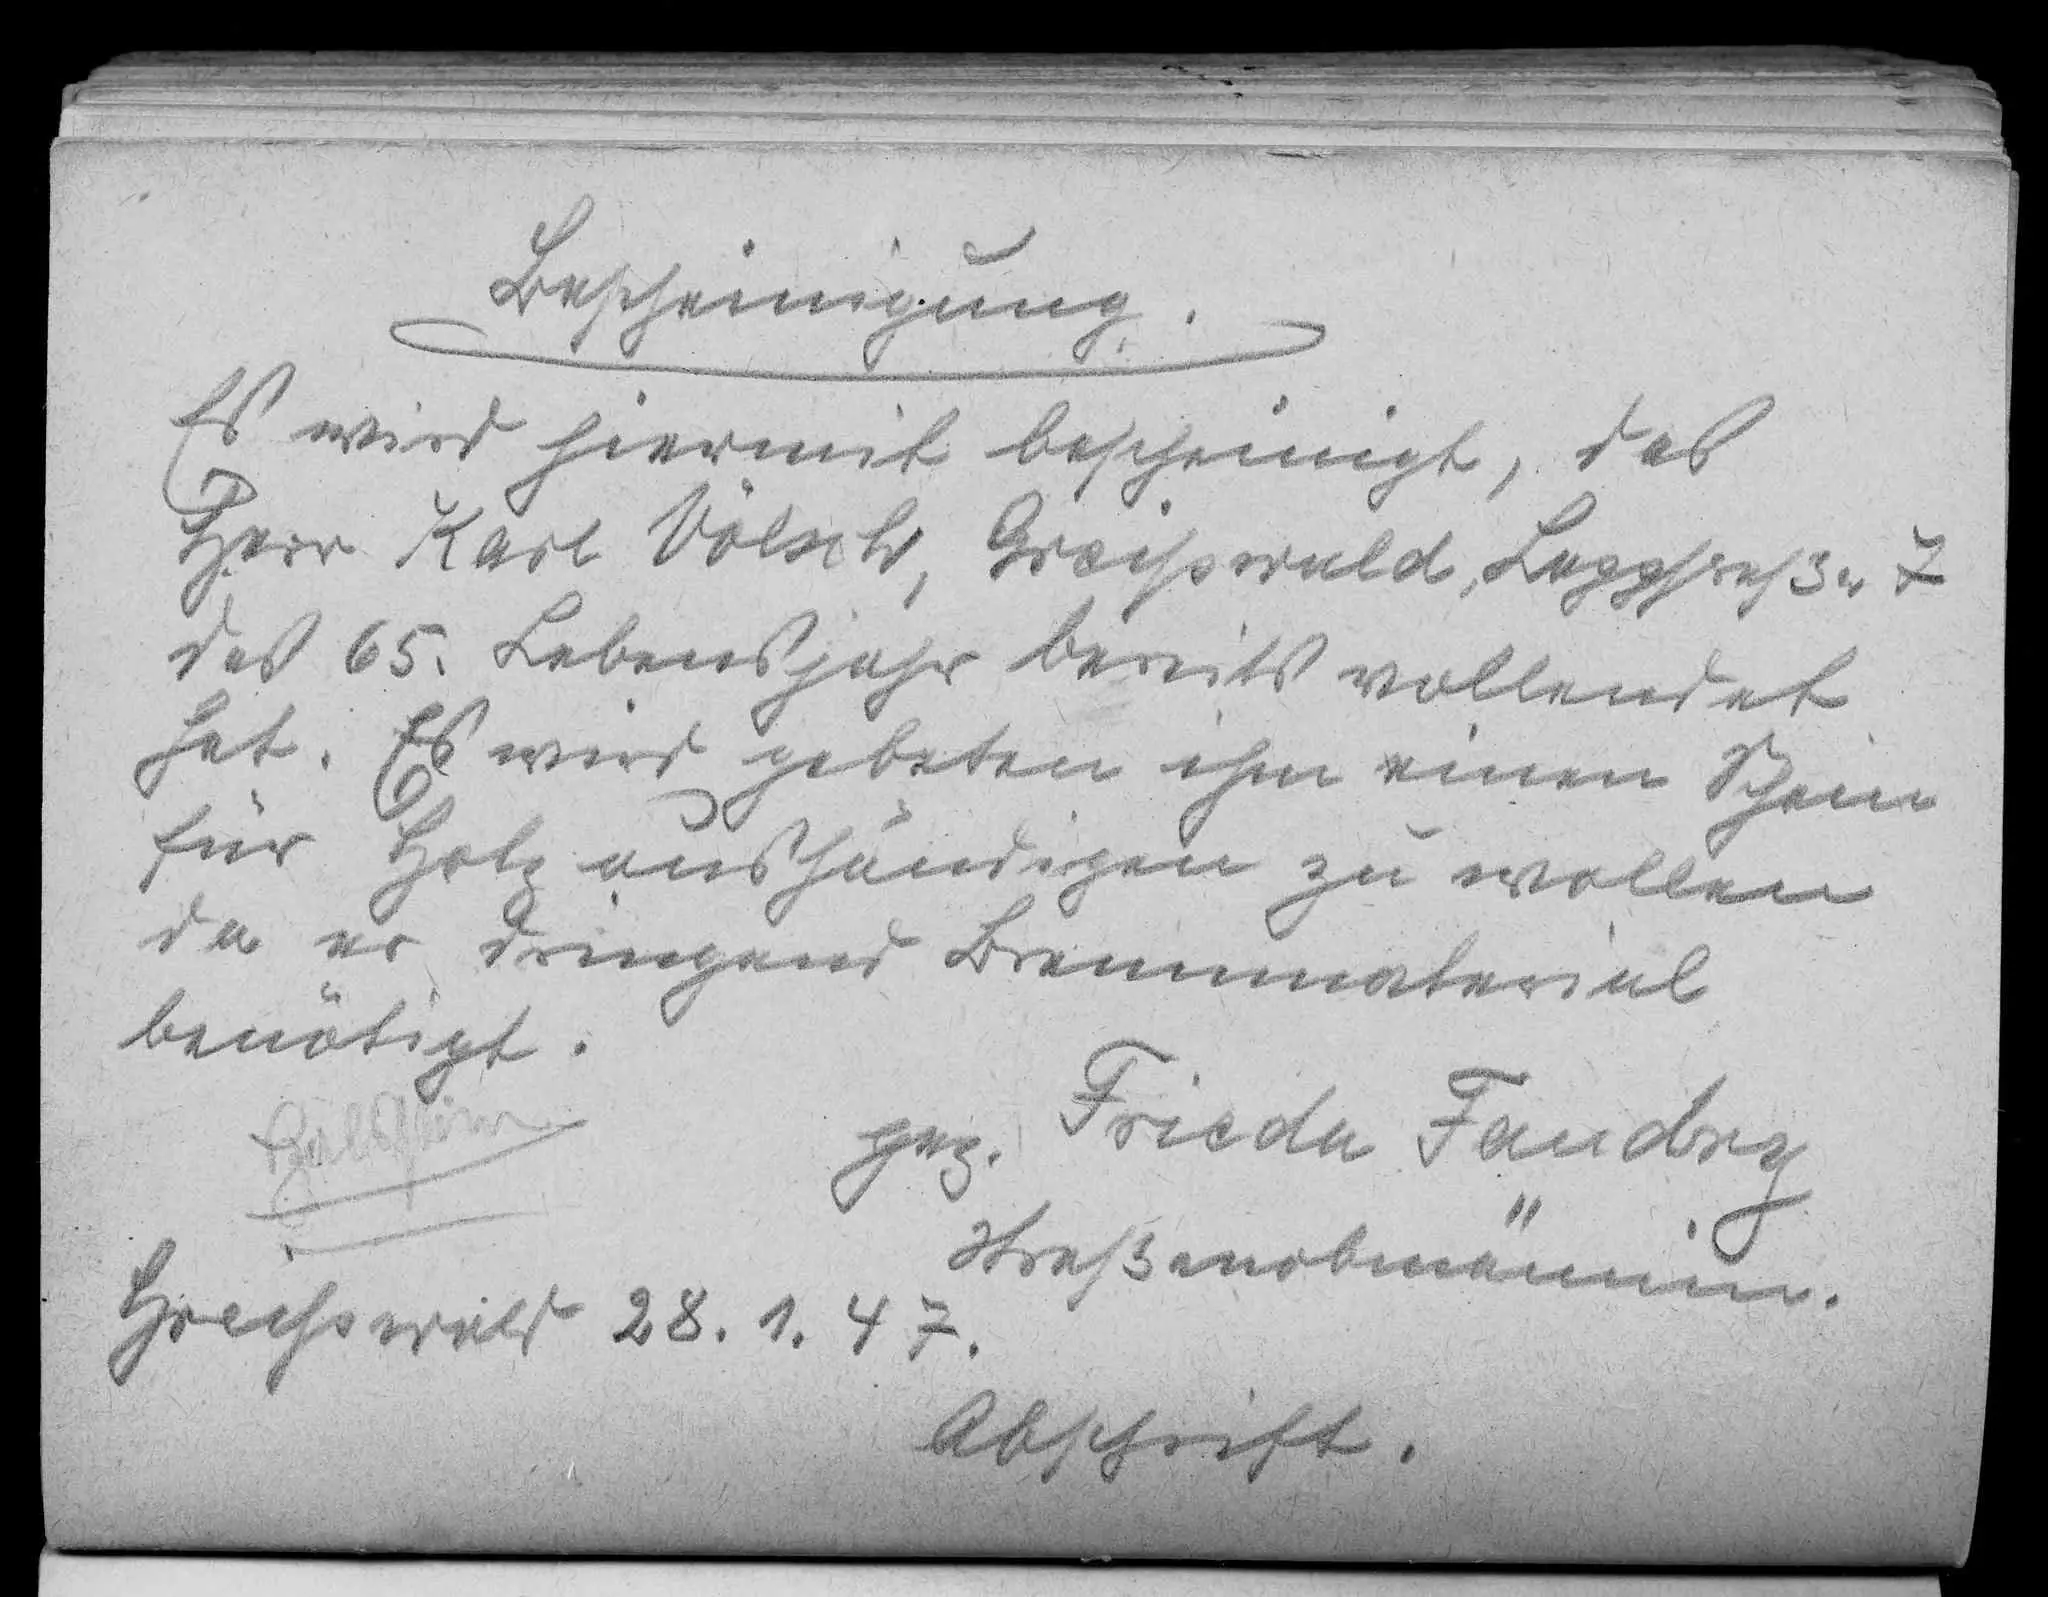 Bescheinigung.
Es wird hiermit bescheinigt, das
Herr Karl Völsch, Greifswald, Loggstraße 7
das 65. Lebensjahr bereits vollendet
hat. Es wird gebeten ihm einen Schein
für Holz aushändigen zu wollen
da er dringend Brennmaterial
benötigt.
Holzschein
gez. Frieda Fandrey
Straßenobmännin.
Greifswald 28.1.47.
Abschrift.